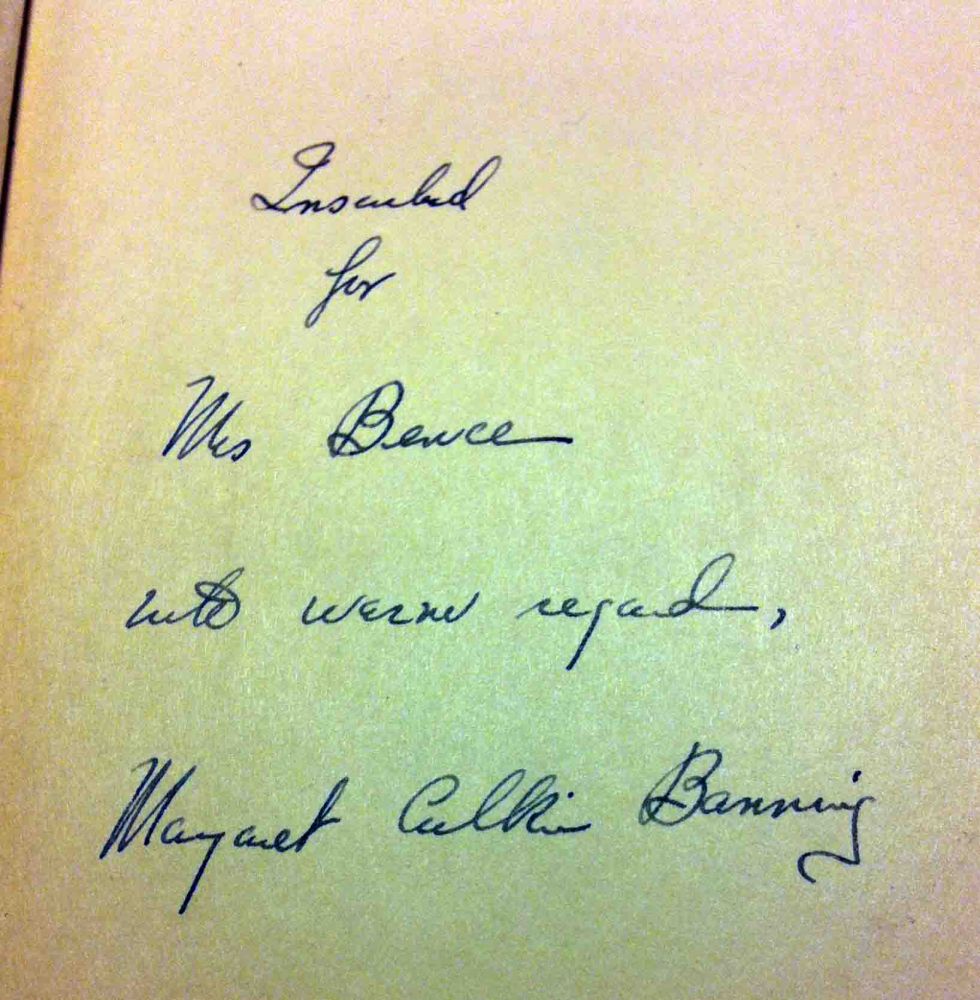 Inscribed
for
Mrs Bence
with warm regard,
Margaret Culkin Banning